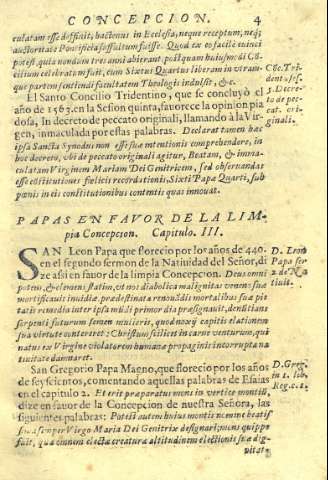 CONCEPCION. 4
culatam esse defficit, hactenus in Ecclesia, neque receptum, neq;
auctoritate Pontificia suffultum fuisse. Quod ex eo facilè
potest, quia nondum tres anni abierant, postquam huiusmodi Cō
cilium celebratum fuit, cum Sixtus Quartus liberam in vtram-
que partem sentiendi facultatem Theologis indulsit, &c.
Cōc. Tri
dent. ses.
5. Decre-
to de pec-
cat. ori-
ginali.
El Santo Concilio Tridentino, que se concluyò el
año de 1563. en la Sesion quinta, fauorece la opinion pia
dosa, In decreto de peccato originali, llamando à la Vir-
gen, inmaculada por estas palabras. Declarat tamen hæc
ipsa Sancta Synodus non esse suæ intentionis comprehendere, in
hoc decreto, vbi de peccato originali agitur, Beatam, & imma-
culatam Virginem Mariam Dei Genitricem, sed obseruandas
esse constitutiones fœlicis recordationis Sixti Papæ Quarti, sub
pœnis in eis constitutionibus contentis quas innouat.
PAPAS EN FAVOR DE LA LIM-
pia Concepcion. Capitulo. III.
SAN Leon Papa que florecio por los años de 440.
en el segundo sermon de la Natiuidad del Señor, di
ze assi en fauor de la limpia Concepcion. Deus omni
potens, & clemens statim, vt nos diabolica malignitas veneno suæ
mortificauit inuidiæ, prædestinata renouādis mortalibus suæ pie
tatis remedia inter ipsa mūdi primordia præsignauit, denūtians
serpenti futurum semen mulieris, quod noxij capitis elationem
sua virtute contereret; Christum scilicet in carne venturum, qui
natus ex Virgine violatorem humanæ propaginis incorrupta na
tiuitate damnaret.
D. Leon
Papa ser
2. de Na
tiuit.
San Gregorio Papa Magno, que florecio por los años
de seyscientos, comentando aquellas palabras de Esaias
en el capitulo 2. Et erit præparatus mons in vertice montiū,
dize en fauor de la Concepcion de nuestra Señora, las
siguientes palabras: Potest autem huius montis nomine beatis
sima semper Virgo Maria Dei Genitrix designari; mons quippe
fuit, quæ omnem electæ creaturæ altitudinem electionis suæ dig-
D. Greg.
in 1. lib.
Reg. c. 1.
nitate